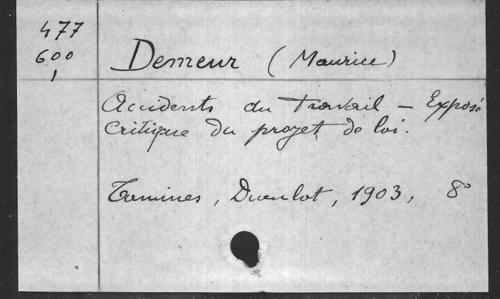 477
600
1
Demeur (Maurice)
Accidents du travail – Exposé
critique du projet de loi.
Tamines, Duculot, 1903, 8°